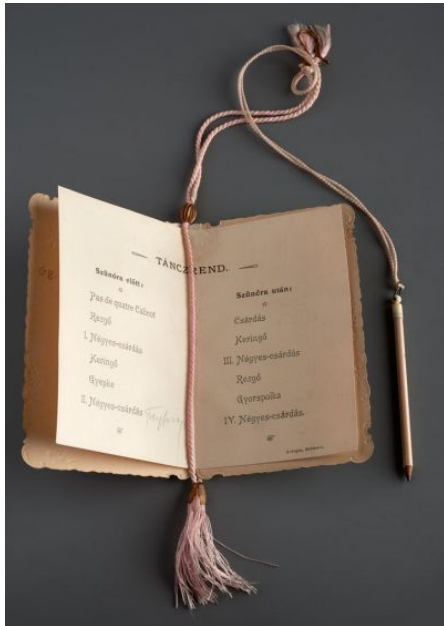 TÁNCZREND.
Szünóra előtt:
Pas de quatre Cabinot
Rezgő
I. Négyes-csárdás
Keringő
Gyepke
II. Négyes-csárdás
Szünóra után:
Csárdás
Keringő
III. Négyes-csárdás
Rezgő
Gyorspolka
IV. Négyes-csárdás.